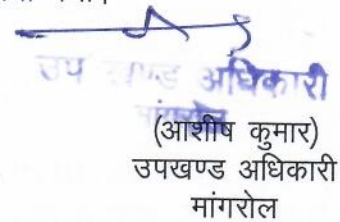 उप खण्ड अधिकारी
मांगरोल
(आशीष कुमार)
उपखण्ड अधिकारी
मांगरोल